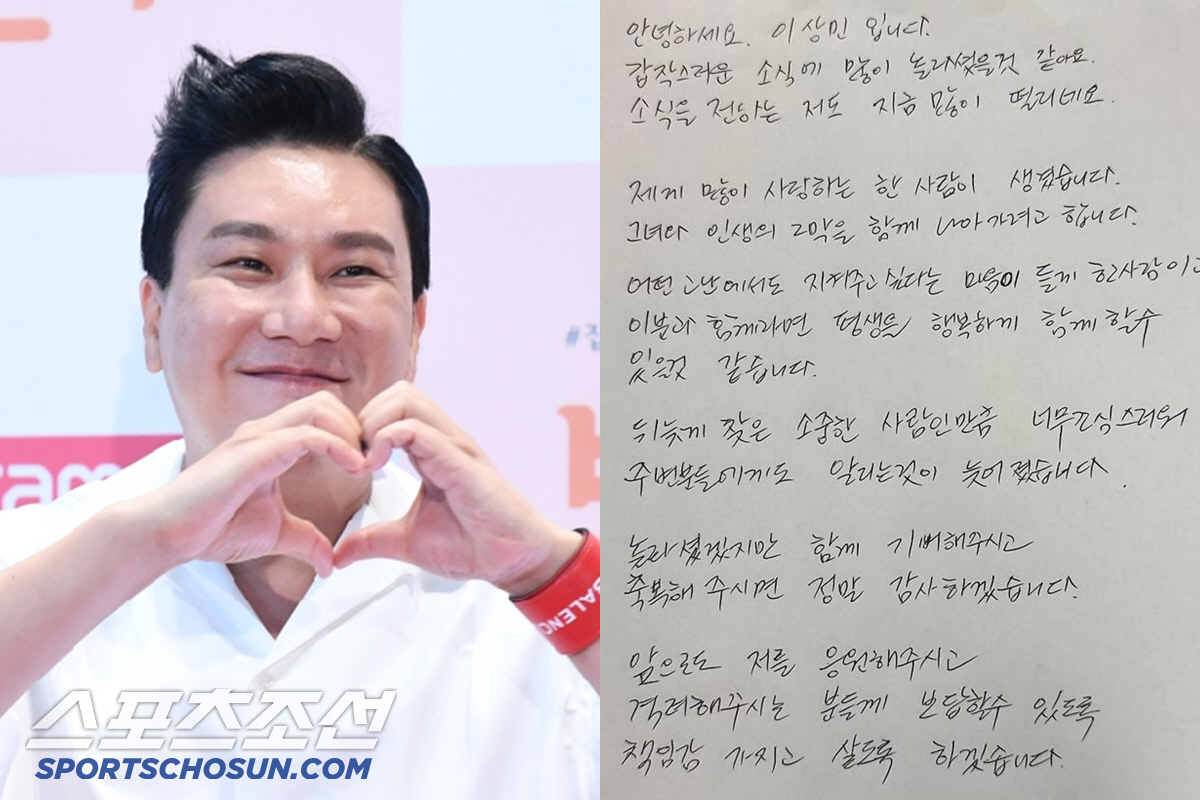 안녕하세요. 이상민 입니다.
갑작스러운 소식에 많이 놀라셨을것 같아요.
소식을 전하는 저도 지금 많이 떨리네요.
제게 많이 사랑하는 한 사람이 생겼습니다.
그녀와 인생의 2막을 함께 나아가려고 합니다.
어떤 고난에서도 지켜주고싶다는 마음이 들게 한사람이고
이분과 함께라면 평생을 행복하게 함께할수
있을것 같습니다.
뒤늦게 찾은 소중한 사람인만큼 너무조심스러워
주변분들에게도 알리는것이 늦어졌습니다.
놀라셨겠지만 함께 기뻐해주시고
축복해 주시면 정말 감사하겠습니다.
앞으로도 저를 응원해주시고
격려해주시는 분들께 보답할수 있도록
책임감 가지고 살도록 하겠습니다.
#집
ram
BALENC
스포츠조선
SPORTSCHOSUN.COM